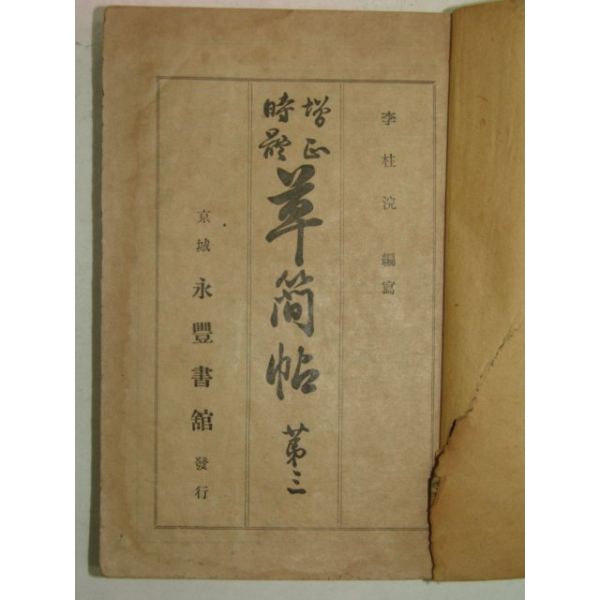 李桂浣 編寫
增正
時體
草簡帖 第三
京城 永豐書舘 發行